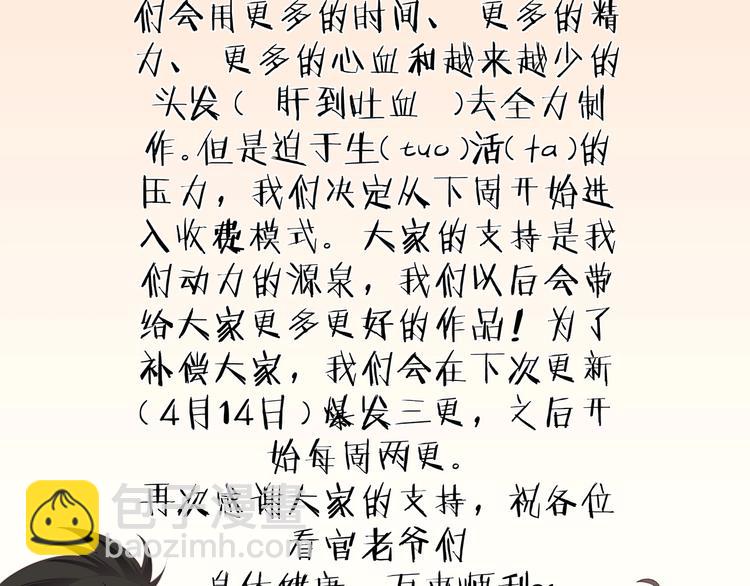 们会用更多的时间、更多的精
力、更多的心血和越来越少的
头发(肝到吐血)去全力制
作。但是迫于生(tuo)活(fa)的
压力，我们决定从下周开始进
入收费模式。大家的支持是我
们动力的源泉，我们以后会带
给大家更多更好的作品！为了
补偿大家，我们会在下次更新
(4月14日)爆发三更，之后开
始每周两更。
再次感谢大家的支持，祝各位
看官老爷们
包子漫畫
baozimh.com